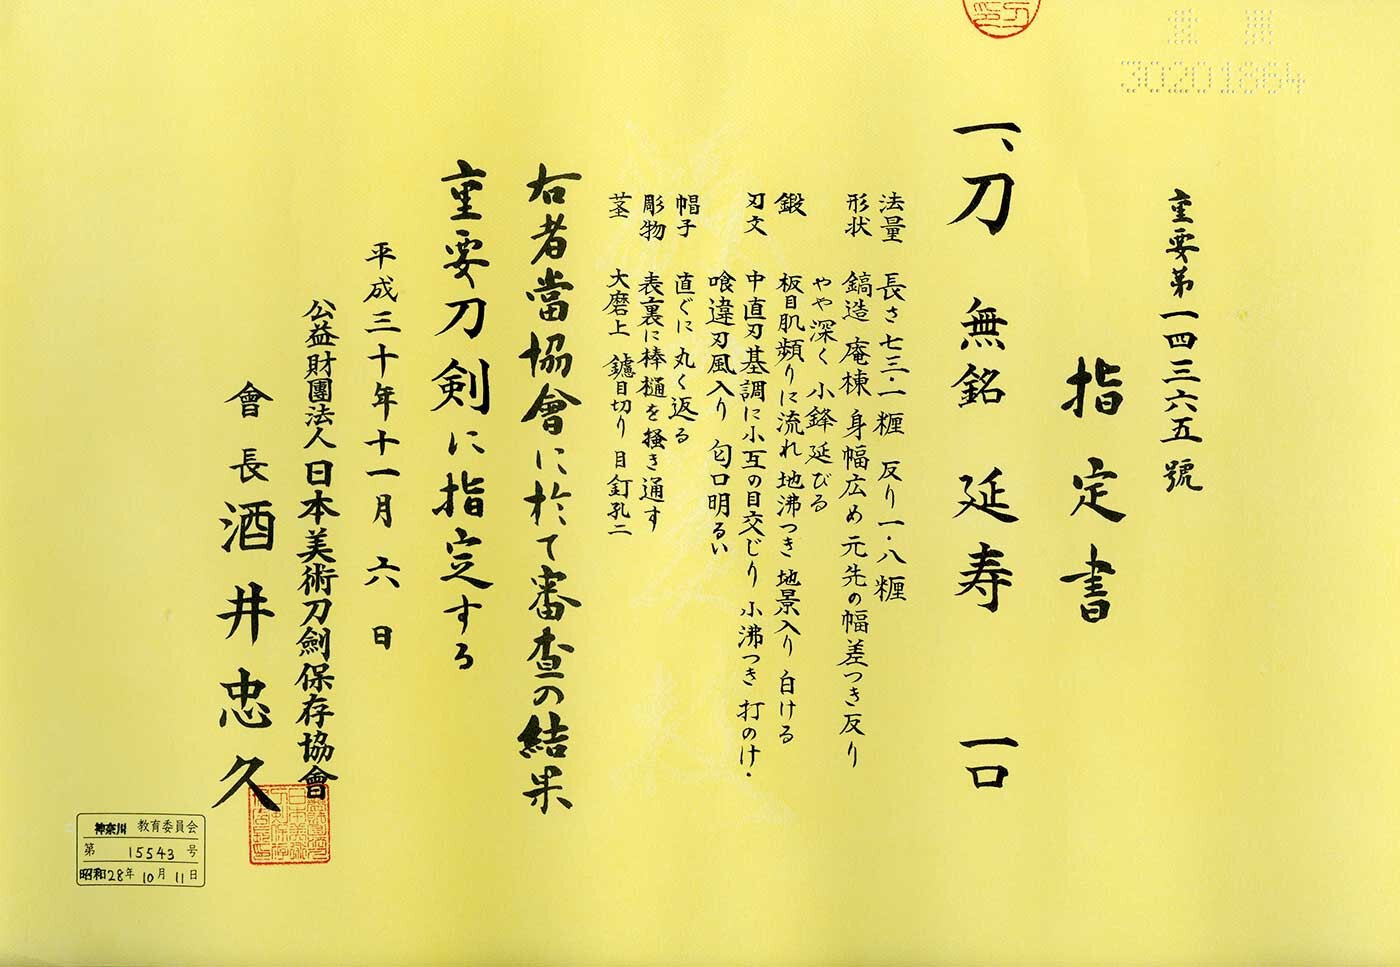 重要第一四三六五號
指定書
一、刀 無銘 延寿 一口
法量 長さ七三・一糎 反り一・八糎
形状 鎬造 庵棟 身幅広め 元先の幅差つき反り
やや深く 小鋒延びる
鍛 板目肌頻りに流れ 地沸つき 地景入り 白ける
刃文 中直刃基調に小互の目交じり 小沸つき 打のけ・
喰違刃風入り 匂口明るい
帽子 直ぐに丸く返る
彫物 表裏に棒樋を掻き通す
茎 大磨上 鑢目切り 目釘孔二
右者當協會に於て審査の結果
重要刀剣に指定する
平成三十年十一月六日
公益財團法人日本美術刀劍保存協會
會長 酒井忠久
30201864
神奈川 教育委員会
第 15543 号
昭和28年10月11日